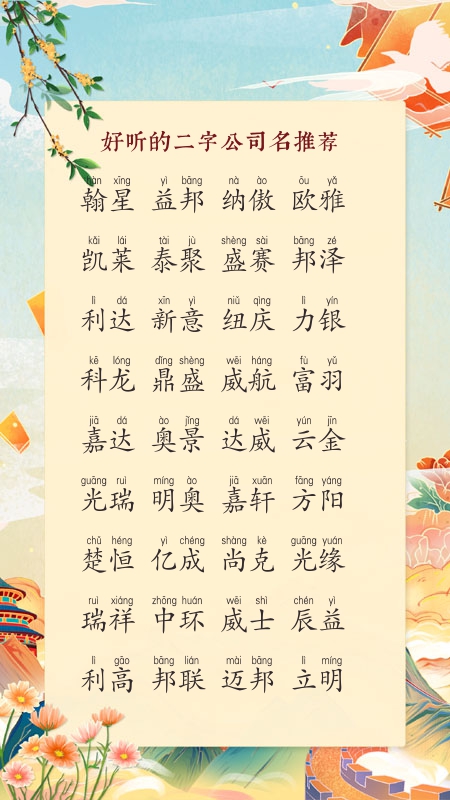 好听的二字公司名推荐
hàn xīng yì bāng nà ào ōu yǎ
翰星 益邦 纳傲 欧雅
kǎi lái tài jù shèng sài bāng zé
凯莱 泰聚 盛赛 邦泽
lì dá xīn yì niǔ qìng lì yín
利达 新意 纽庆 力银
kē lóng dǐng shèng wēi háng fù yǔ
科龙 鼎盛 威航 富羽
jiā dá ào jǐng dá wēi yún jīn
嘉达 奥景 达威 云金
guāng ruì míng ào jiā xuān fāng yáng
光瑞 明奥 嘉轩 方阳
chǔ héng yì chéng shàng kè guāng yuán
楚恒 亿成 尚克 光缘
ruì xiáng zhōng huán wēi shì chén yì
瑞祥 中环 威士 辰益
lì gāo bāng lián mài bāng lì míng
利高 邦联 迈邦 立明